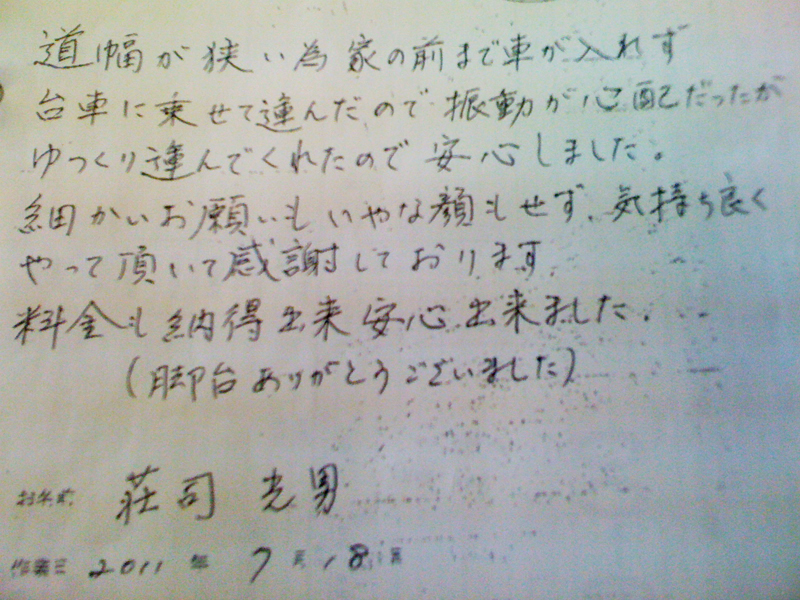 道幅が狭い為家の前まで車が入れず
台車に乗せて運んだので振動が心配だったが
ゆっくり運んでくれたので安心しました。
細かいお願いもいやな顔もせず、気持ち良く
やって頂いて感謝しております。
料金も納得出来安心出来ました。
(脚台ありがとうございました)
お名前 荘司 光男
作業日 2011 年 7 月 18 日